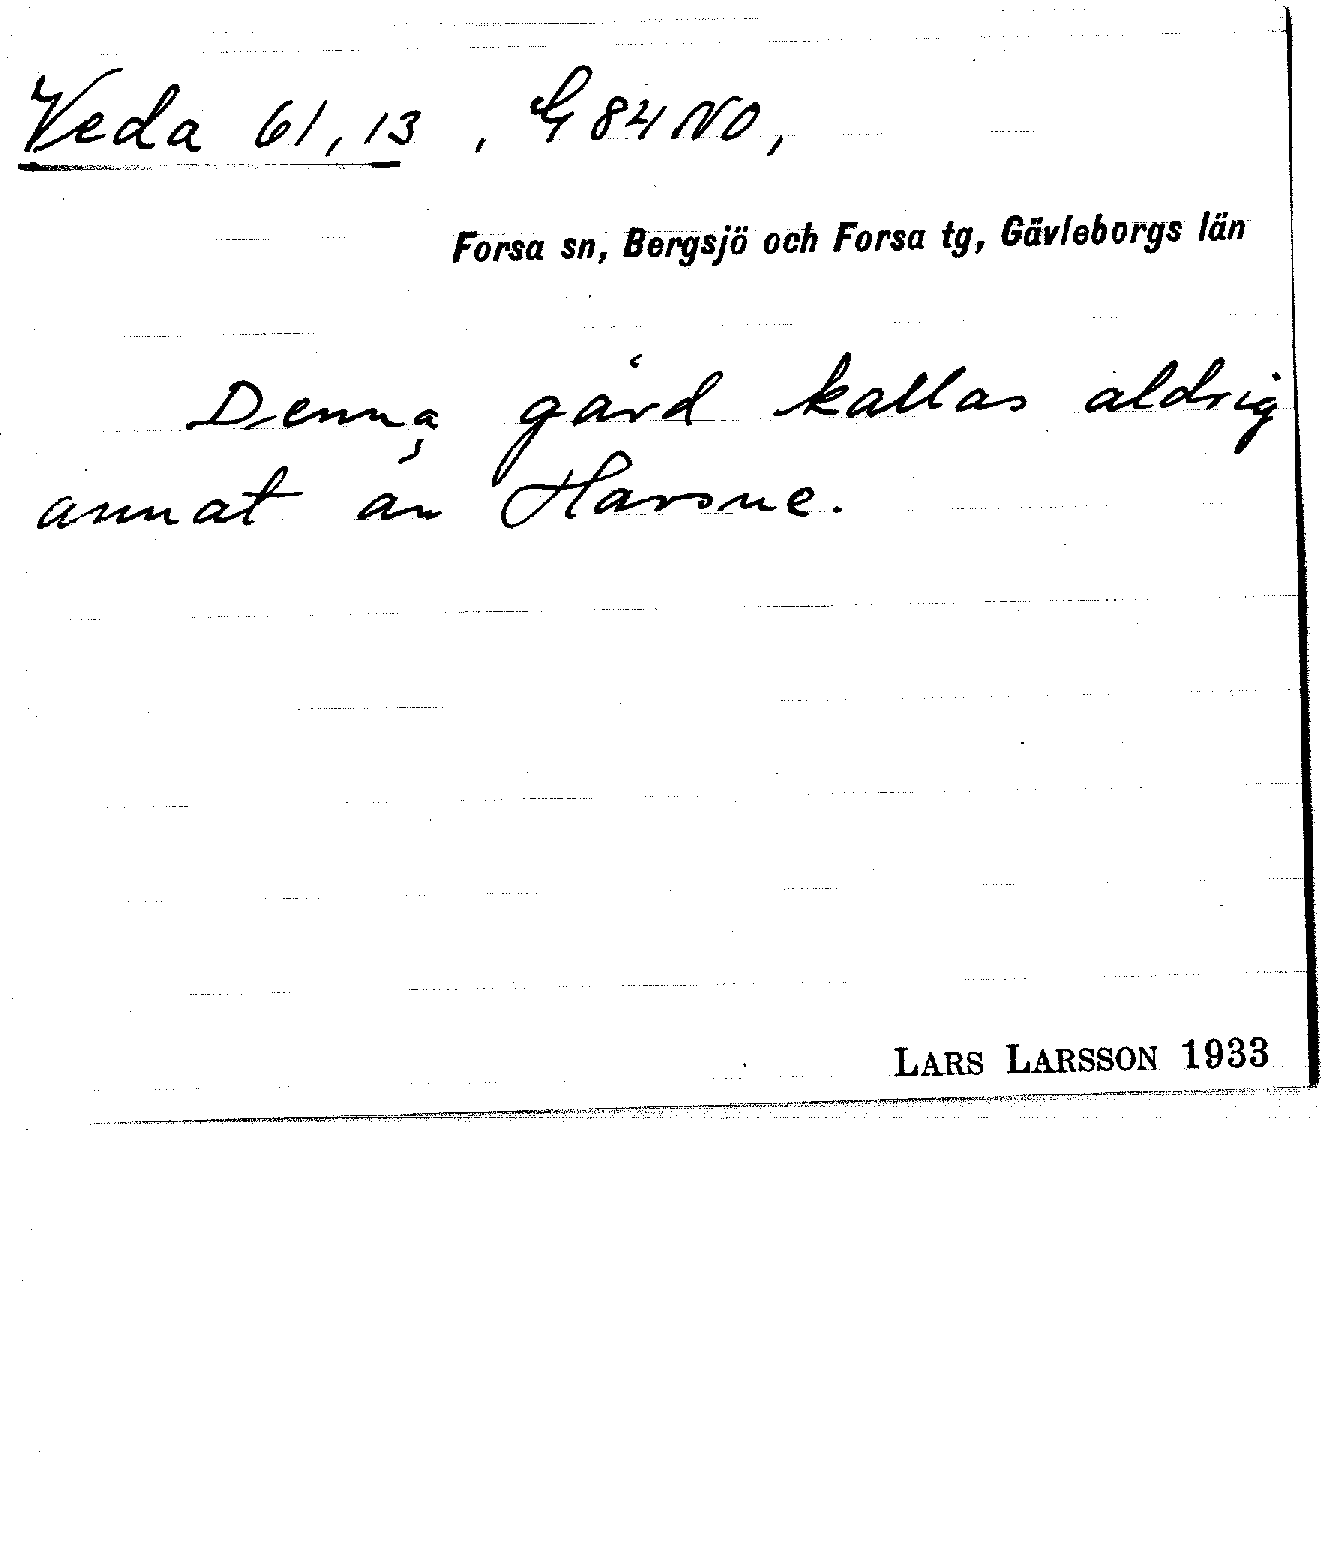 Veda 61,13, G 84 NO,
Forsa sn, Bergsjö och Forsa tg, Gävleborgs län
Denna gård kallas aldrig
annat än Havsne.
LARS LARSSON 1933